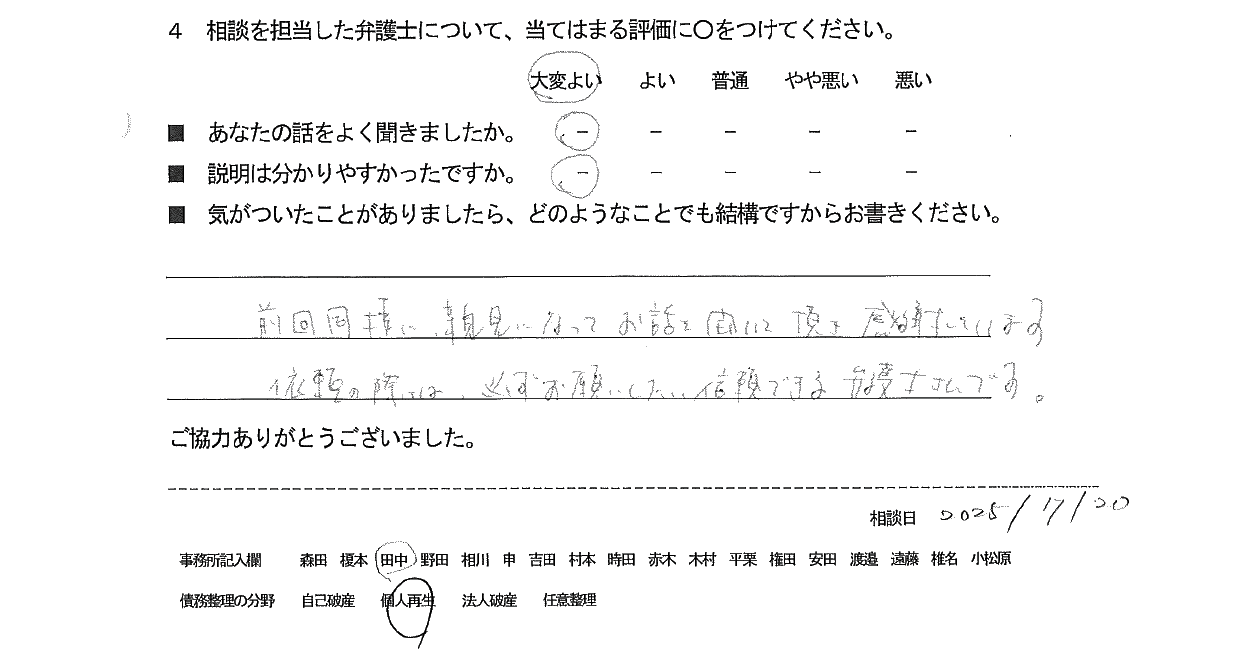 4 相談を担当した弁護士について、当てはまる評価に〇をつけてください。
大変よい よい 普通 やや悪い 悪い
■ あなたの話をよく聞きましたか。 － － － － －
■ 説明は分かりやすかったですか。 － － － － －
■ 気がついたことがありましたら、どのようなことでも結構ですからお書きください。
前回同様に、親見になってお話を聞いて頂き感謝しています
依頼の際には、必ずお願いしたい信頼できる弁護士さんです。
ご協力ありがとうございました。
相談日 2025/11/20
事務所記入欄 森田 榎本 田中 野田 相川 申 吉田 村本 時田 赤木 木村 平栗 権田 安田 渡邉 遠藤 椎名 小松原
債務整理の分野 自己破産 個人再生 法人破産 任意整理